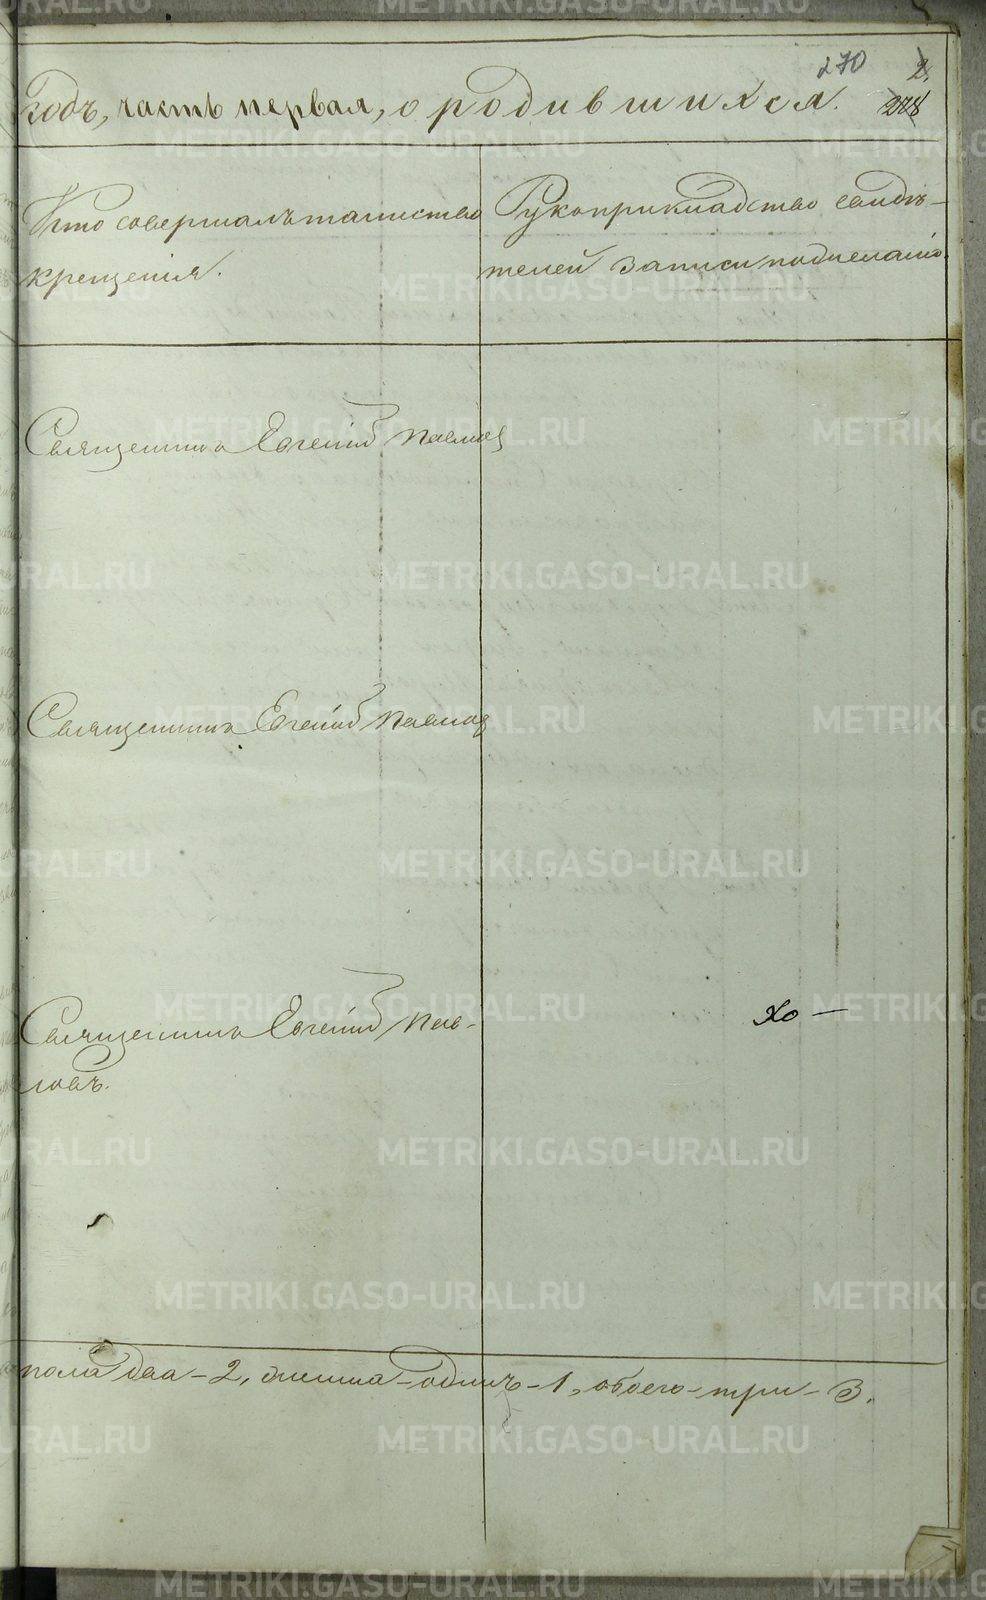 270 2.
Годъ, часть первая, о родившихся. 278
Кто совершалъ таинство
крещенія.
Рукоприкладство свидѣ-
телей записи по желанію.
Священникъ Евгеній Павловъ
Священникъ Евгеній Павловъ
Священникъ Евгеній Пав-
ловъ.
Хо —
пола два - 2, женска - одинъ - 1, обоего - три - 3.
METRIKI.GASO-URAL.RU